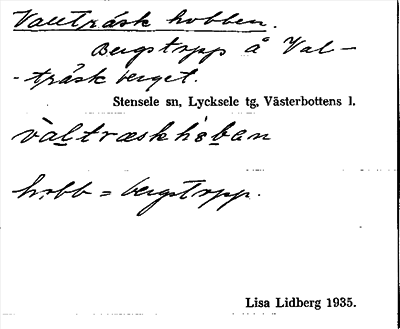 Vallträsk hobben.
Bergstopp å Val-
-träsk berget.
Stensele sn, Lycksele tg, Västerbottens l.
hobb = bergstopp.
Lisa Lidberg 1935.